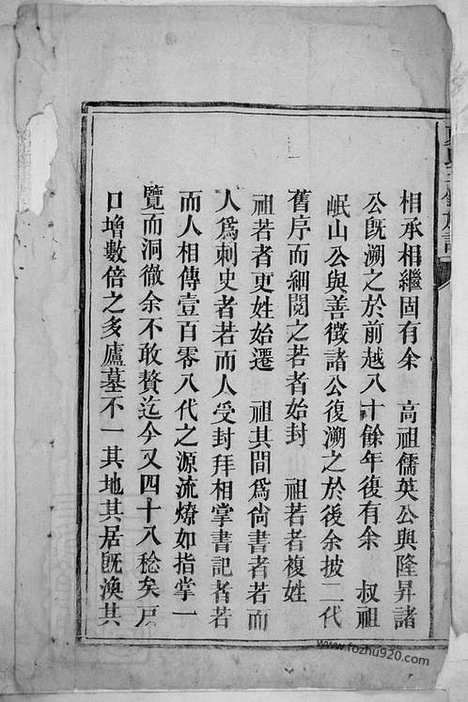 相承相繼固有余 高祖儒英公與隆昇諸
公旣溯之於前越八十餘年復有余 叔祖
岷山公與善徵諸公復溯之於後余披二代
舊序而細閱之若者始封 祖若者複姓
祖若者更姓始遷 祖其間爲尙書者若而
人爲刺史者若而人受封拜相掌書記者若
而人相傳壹百零八代之源流燎如指掌一
覽而洞徹余不敢贅迄今又四十八稔矣戶
口增數倍之多廬墓不一其地其居旣渙其
www.fozhu920.com